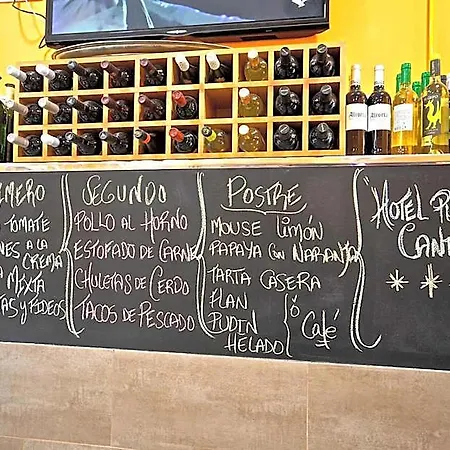 TOMATE
A LA
CREMA
MIXTA
Y FIDEOS
SEGUNDO
POLLO AL HORNO
ESTOFADO DE CARNE
CHULETAS DE CERDO
TACOS DE PESCADO
POSTRE
MOUSE LIMÓN
PAPAYA CON NARANJA
TARTA CASERA
FLAN
PUDIN
HELADO
ó
Café
"HOTEL